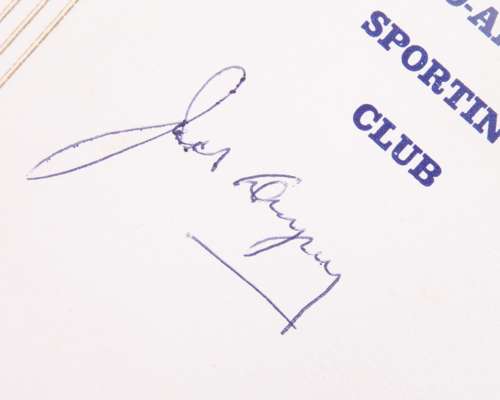 O-A
SPORTIN
CLUB
Jack Dempsey